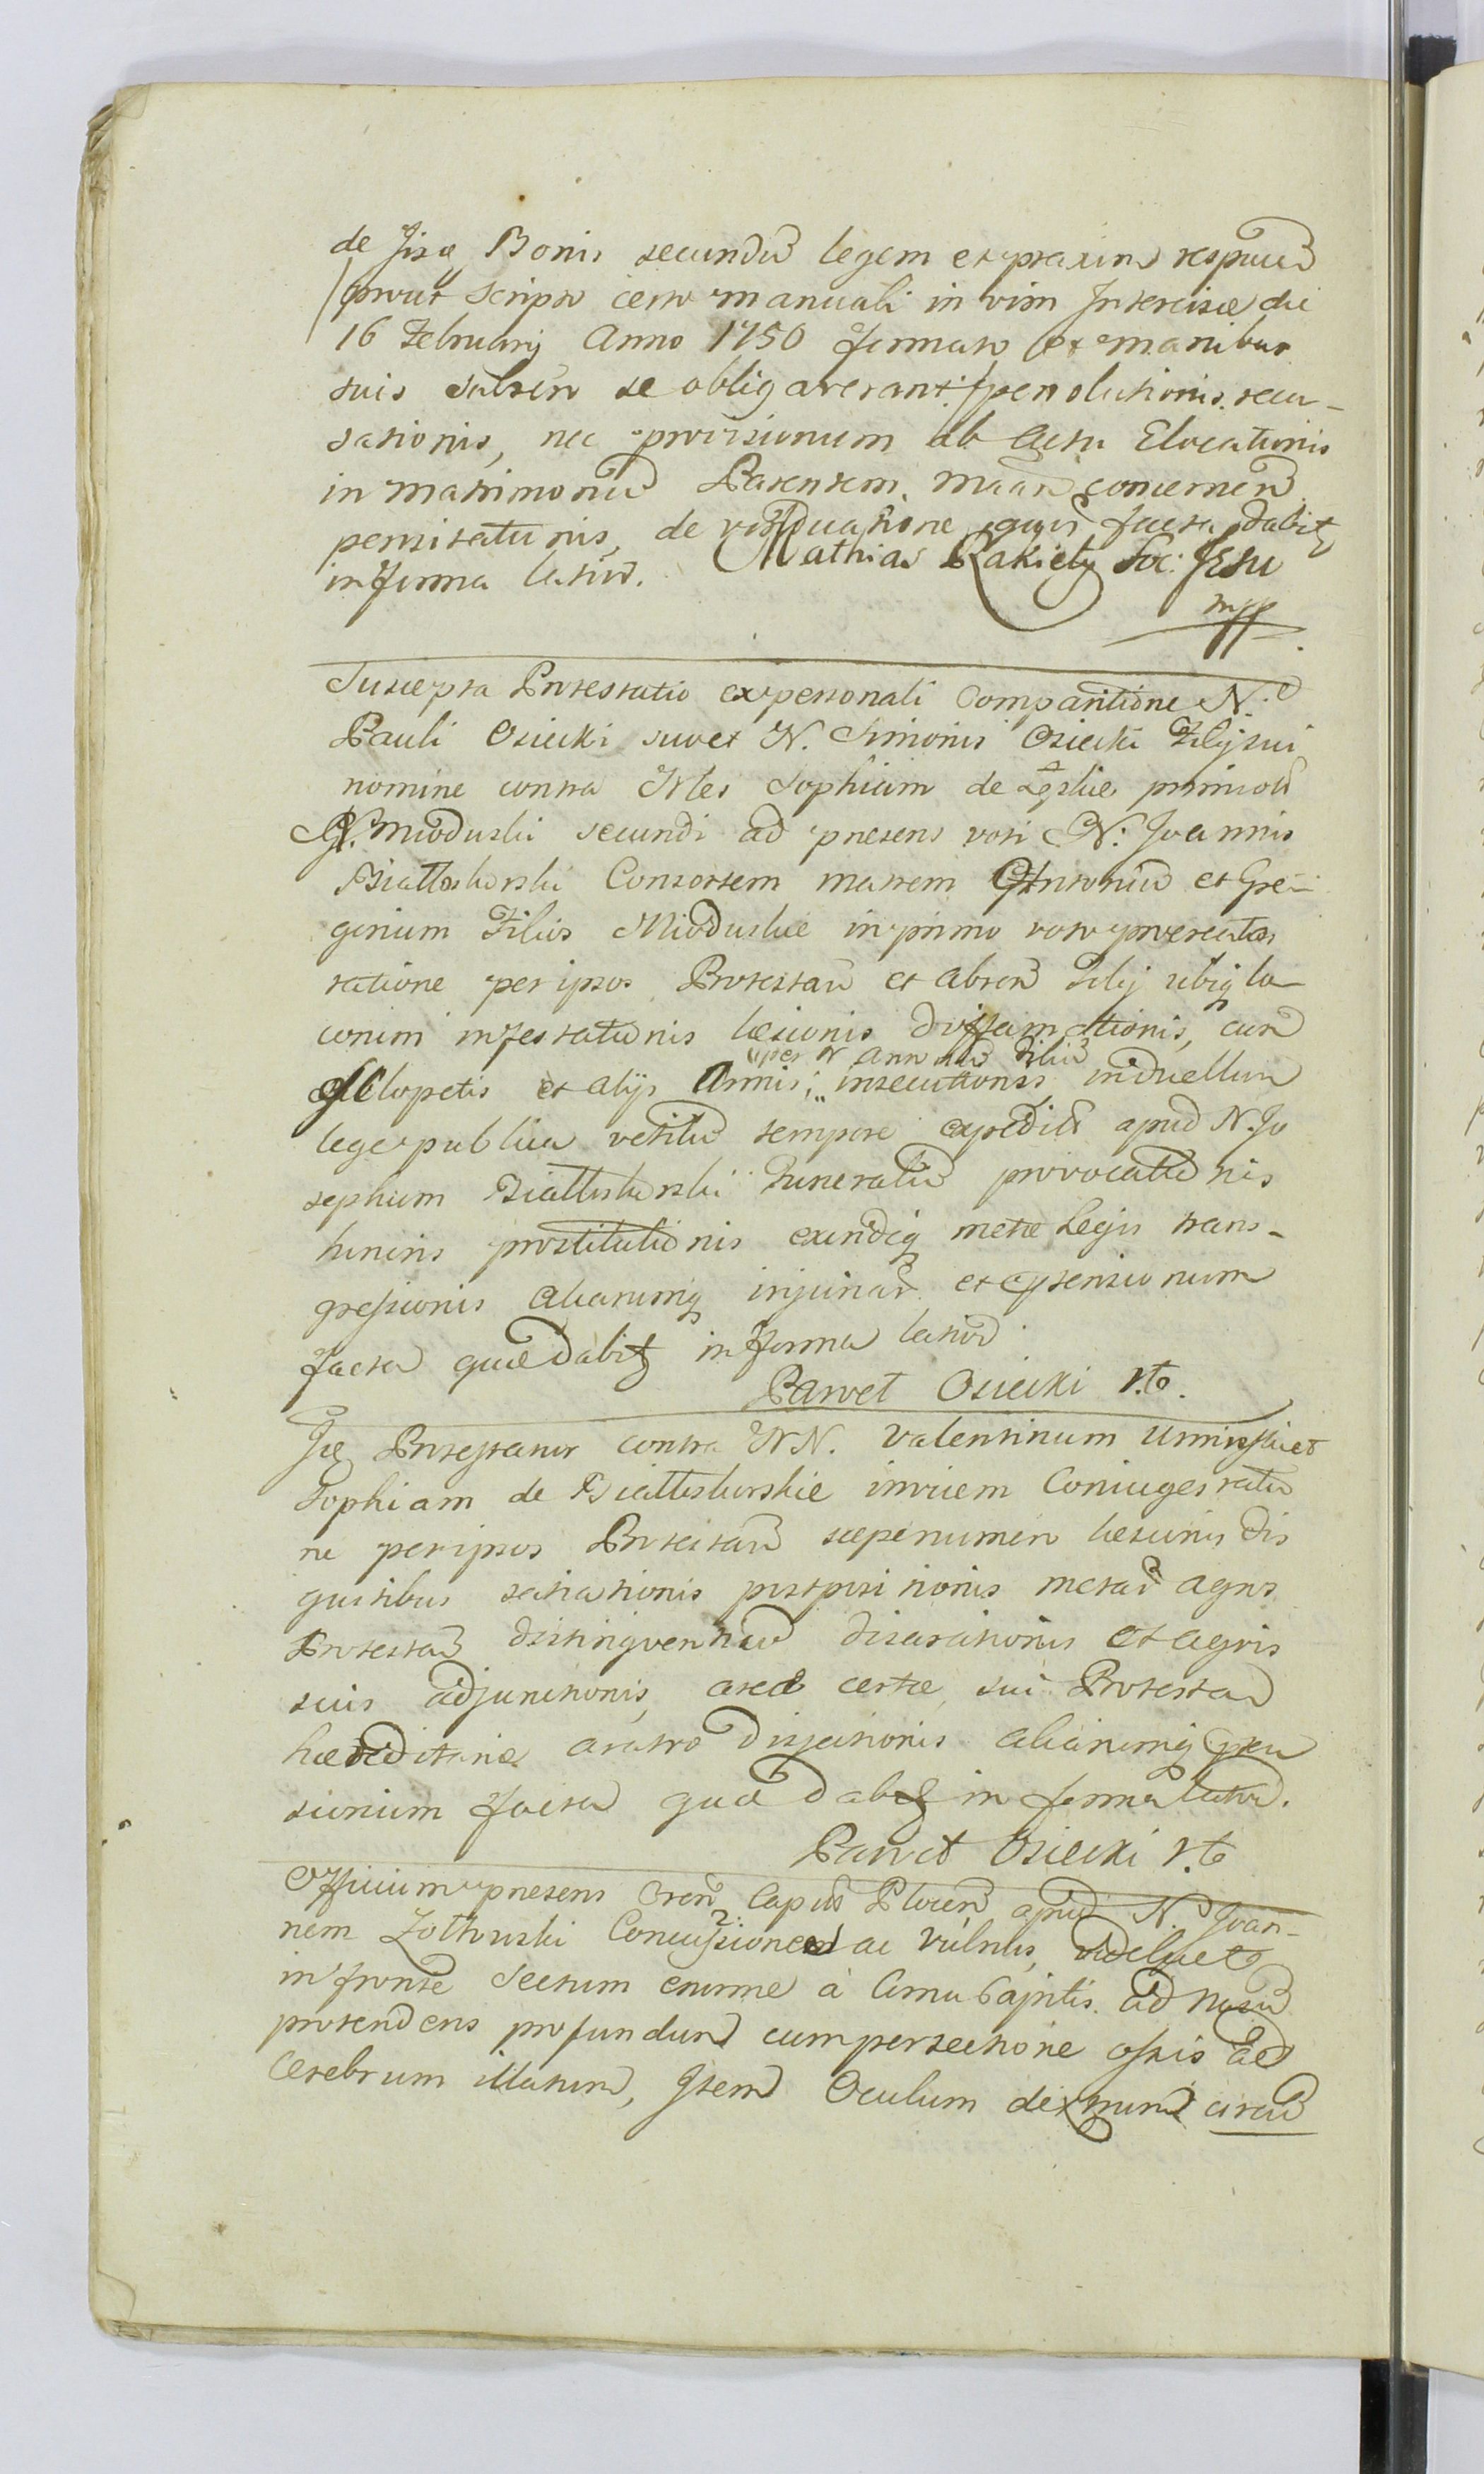 de Jisq Bonis secundū legem et praxim respuū
prout Scripto certo manuali in vim Intercisæ die
16 Februarij Anno 1750 formato et manibus
suis subscrip se obligaverant: persolutionis recu-
sationis, nec provisionum ab Actu Elocationis
in matrimoniū Parentem, concernen
pensitationis, de facta dabitq
in forma latiori. Mathias Rakiety Soc: Jesu
mpp
Suscepta Protestatio ex personali Comparitione N.
Pauli Osiecki suo et N. Simonis Osiecki Filij sui
nomine contra Nles Sophiam de primi voti
G. Mioduski secundi ad præsens voti N: Joannis
Białłoskorski Consortem matrem Antoniū et Gre-
gorium Filios Mioduskie in primo voto procreatos
ratione per ipsos Protestan et absen Filij ubiq lo-
corum infestationis læsionis diffamationis, cum
Sclopetis et alijs Armis; insecutionis in duellum
per N Antoniū Filiū
lege publica vetitū tempore expedit apud N. Jo
sephum Białłoskorski Funeralū provocationis
honoris prostitutionis exindeq metæ Legis trans-
gressionis aliarumq injuriar et offensionum
facta quæ dabitq in forma latiori.
Paweł Osiecki mp.
Jdē Protestatur contra NN. Valentinum et
Sophiam de Białłoskorskie invicem Coniuges ratio
ne per ipsos Protestan sæpenumero læsionis dis
gustibus satiationis postpositionis metar agros
Protestan distinguentiū disarationis et agris
suis adjunctionis, areæ certæ sui Protestan
hæreditariæ aratro disjectionis aliarumq præten
sionum facta quæ dabitq in forma latiori.
Paweł Osiecki mp
Officium præsens Cren Capitle Plocen apud N. Joan-
nem Żołtowski Concussionem ac Vulnus, videlicet
in fronte Sectum enorme à Cima Capitis ad nasū
protendens profundum cum persectione ossis ad
Cerebrum illatum, Item Oculum dextrum circū